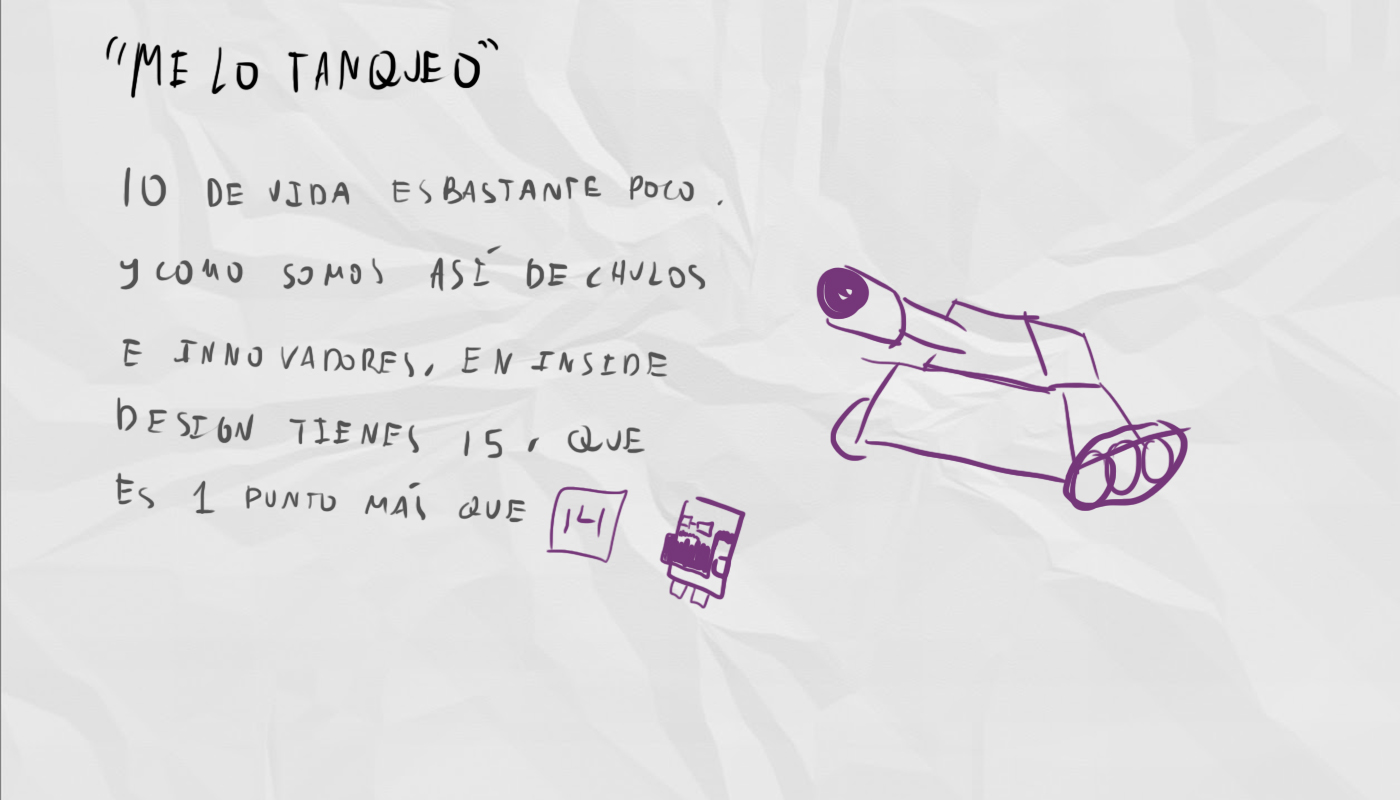 "ME LO TANQUEO"
10 DE VIDA ES BASTANTE POCO.
Y COMO SOMOS ASÍ DE CHULOS
E INNOVADORES, EN INSIDE
DESIGN TIENES 15, QUE
ES 1 PUNTO MÁS QUE 14